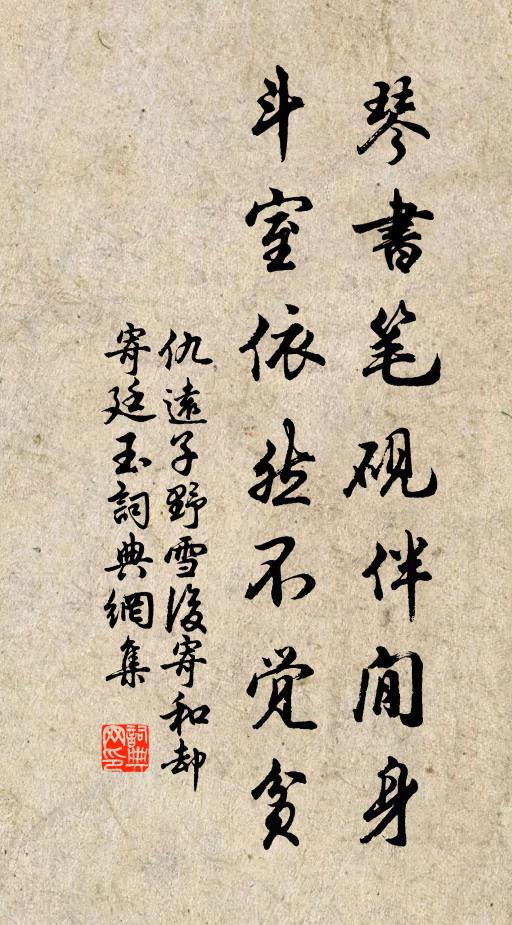 琴書笔硯伴閒身
斗室依然不觉贫
仇遠子野雪後寄和却
寄廷玉詞典網集
詞典网印